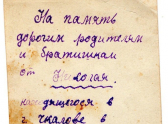 На память
дорогим родителям
и братишкам
от Николая.
находящегося в
г. Чкалове в